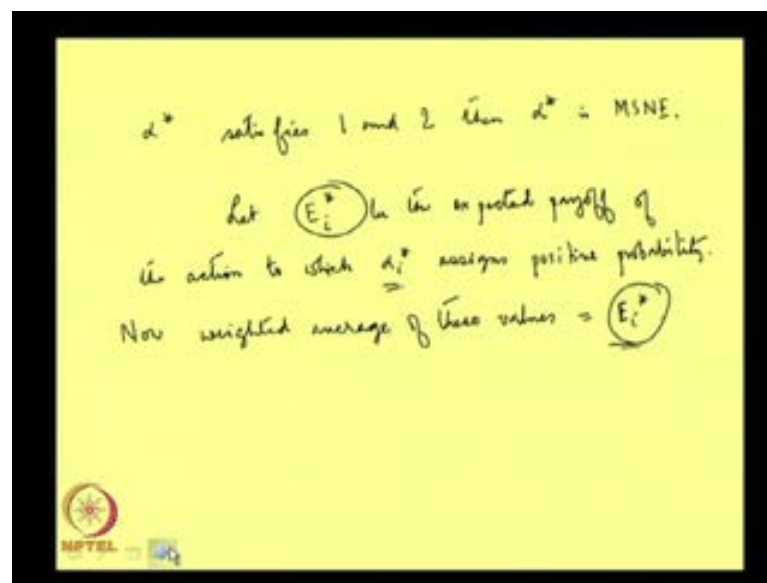 α* satisfies 1 and 2 then α* is MSNE.
Let E_i* be the expected payoff of
the action to which α_i* assigns positive probability.
Now weighted average of these values = E_i*
NPTEL